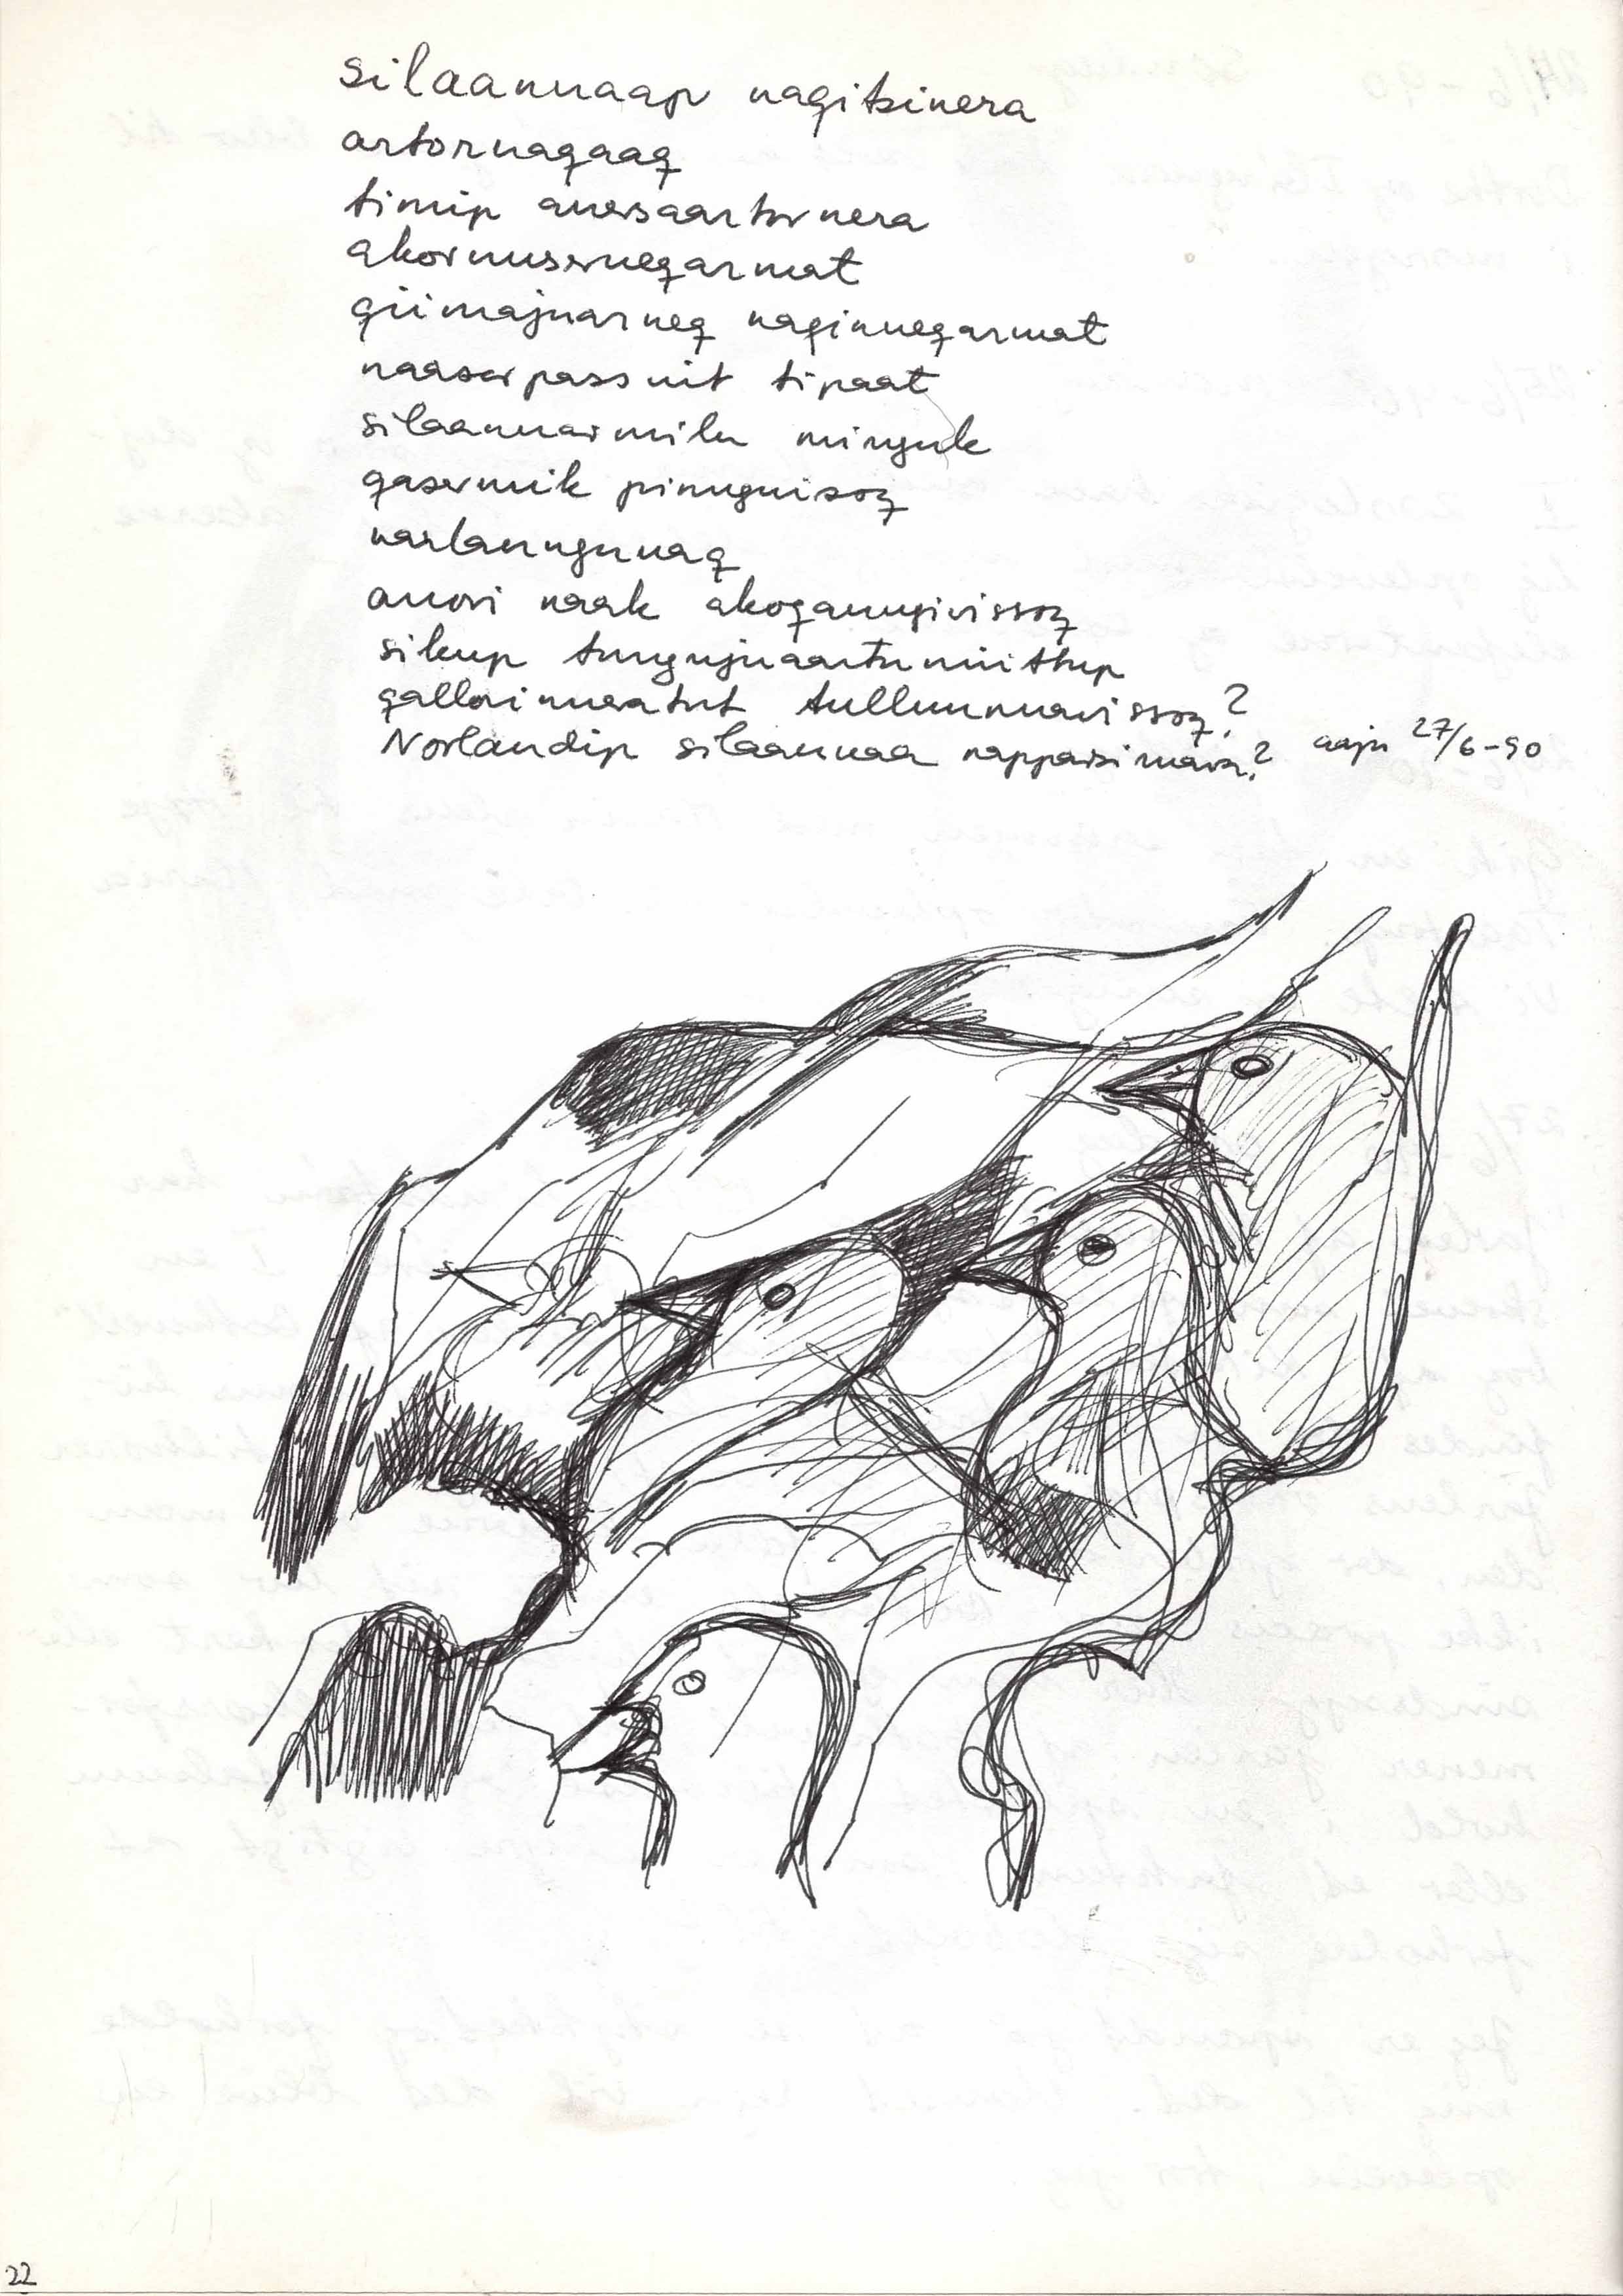 silaannaap naqitsinera
artornaqaaq
timip anersaartornera
akornuserneqarmat
qiimajuarneq naqinneqarmat
naasorpassuit tipaat
silaannarmilu minguk
qasermik pinnguisoq
narlaunngunaq
anori naak akoqanngivissoq
sikup tungujuaartuniittup
qallorinneratut tulluunnavissoq?
Norlandip silaannaa napparsimava? aaju 27/6-90
22